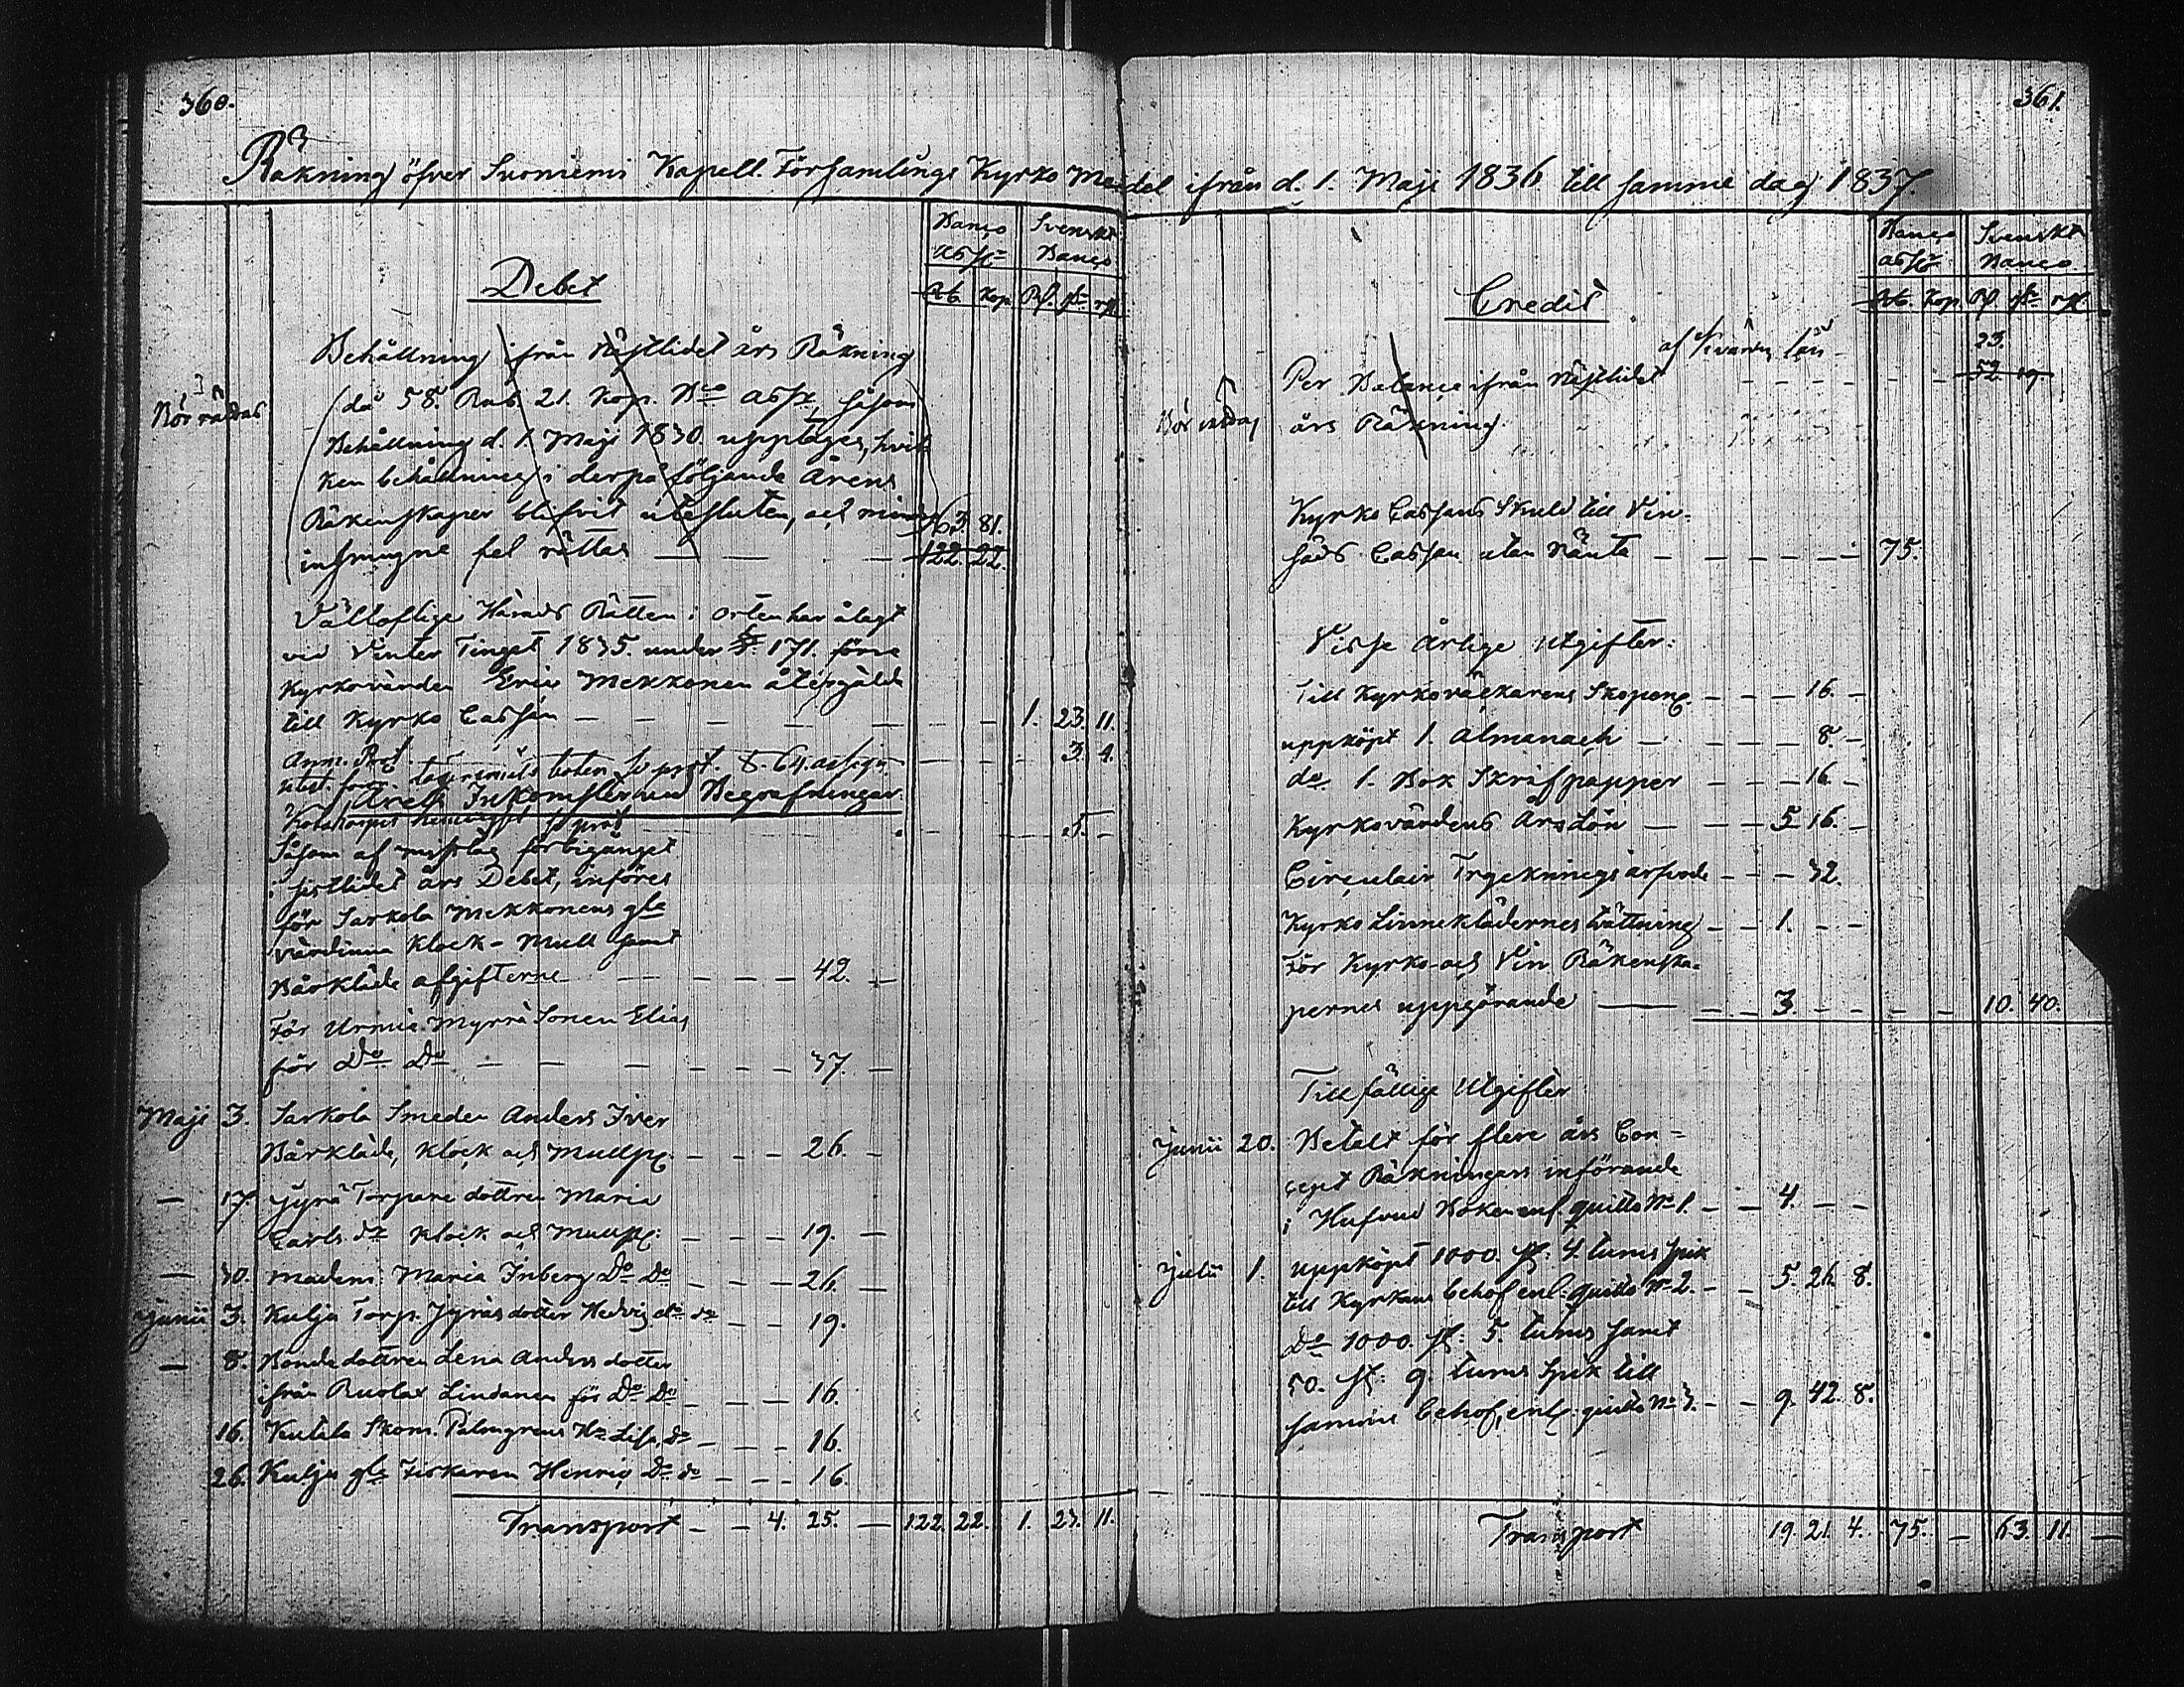 360.
Räkning öfver Suoniemi Kapell. Församlings Kyrko Me
Debet
Banco Svenskt
assg. Banco
Rb. Kop. Rd. sk. rst.
Behållning ifrån näjstlidet års Räkning
Bör rättas
(då 58. Rub. 21. Kop. Bco assg, såsom
Behållning d. 1 Maji 1830 upptages, hvil
ken behållning i derpå följande Årens
Räkenskaper blifvit utesluten, och
63. 81.
insmugne fel rättas — — — 122. 22.
Välloflige Härads Rätten i orten har ålagt
vid Vinter Tinget 1835. under §. 171. förre
Kyrkovärden Eric Mekkonen återgälda
till Kyrko Cassan — — — — — 1. 23. 11.
Anm. — — 3. 4.
Årets Inkomster vid Begrafningar
Såsom af misstag förbigånget
i sistlidet års Debet, införes
för Sarkola Mekkonens gla
värdinna Klock- Mull samt
Bårkläde afgifterne — — — — 42. —
För Urmia Myrrä Sonen Elias
för Do Do — — — — — 37. —
Maji 3. Sarkola Smeden Anders Iver
Bårkläde, Klock och Mullp. — — — 26. —
— 17. Jyrä Torpare dottren Maria
Carls dr Klock och Mullp: — — — 19. —
— 30. Madem: Maria Inberg Do Do — — — 26. —
Junii 3. Kulju Torp. Jyräs dotter Hedvig do do — — 19.
— 8. Bonde dottren Lena Anders dotter
ifrån Ruolax Lindanen för Do Do — — — 16.
16. Kutila Skom. Palmgrens Lisa, do — — — 16.
26. Kulju gla Fiskaren Henric Do do — — — 16.
Transport — — 4. 25. — 122. 22. 1. 23. 11.
361.
del ifrån d. 1. Maji 1836 till samme dag 1837
Credit
Banco Svenskt
assg. Banco
Rb. Kop. Rd. sk. rst.
23.
Per Balance ifrån näjstlidet — — — — — 52. 19
Bör rättas
års Räkning
Kyrko Cassans Skuld till Vin-
säds Cassan utan Ränta — — — — — 75.
Visse årlige Utgifter:
Till Kyrkoväckarens Skopeng. — — — 16. —
uppköpt 1. Almanach — — — — 8. —
do 1. Bok Skrifpapper — — — 16. —
Kyrkovärdens Årslön — — — 5 16. —
Circulair — — — 32.
Kyrko Linneklädernes tvättning — — 1. — —
För Kyrko- och Vin Räkenska-
pernes uppgörande — — — 3. — — — — 10. 40.
Tillfällige Utgifter
Junii 20. Betalt för flere års Con-
cept Räkningars införande
i Hufvud Boken enl. quitto No 1. — — 4. — —
Julii 1. uppköpt 1000. st. 4. tums spik
till Kyrkans behof enl. quitto No 2. — — 5. 26. 8.
Do 1000. st: 5. tums samt
50. st: 9. tums spik till
samme behof, enl. quitto No 3. — — 9. 42. 8.
Transport 19. 21. 4. 75. — 63. 11. —